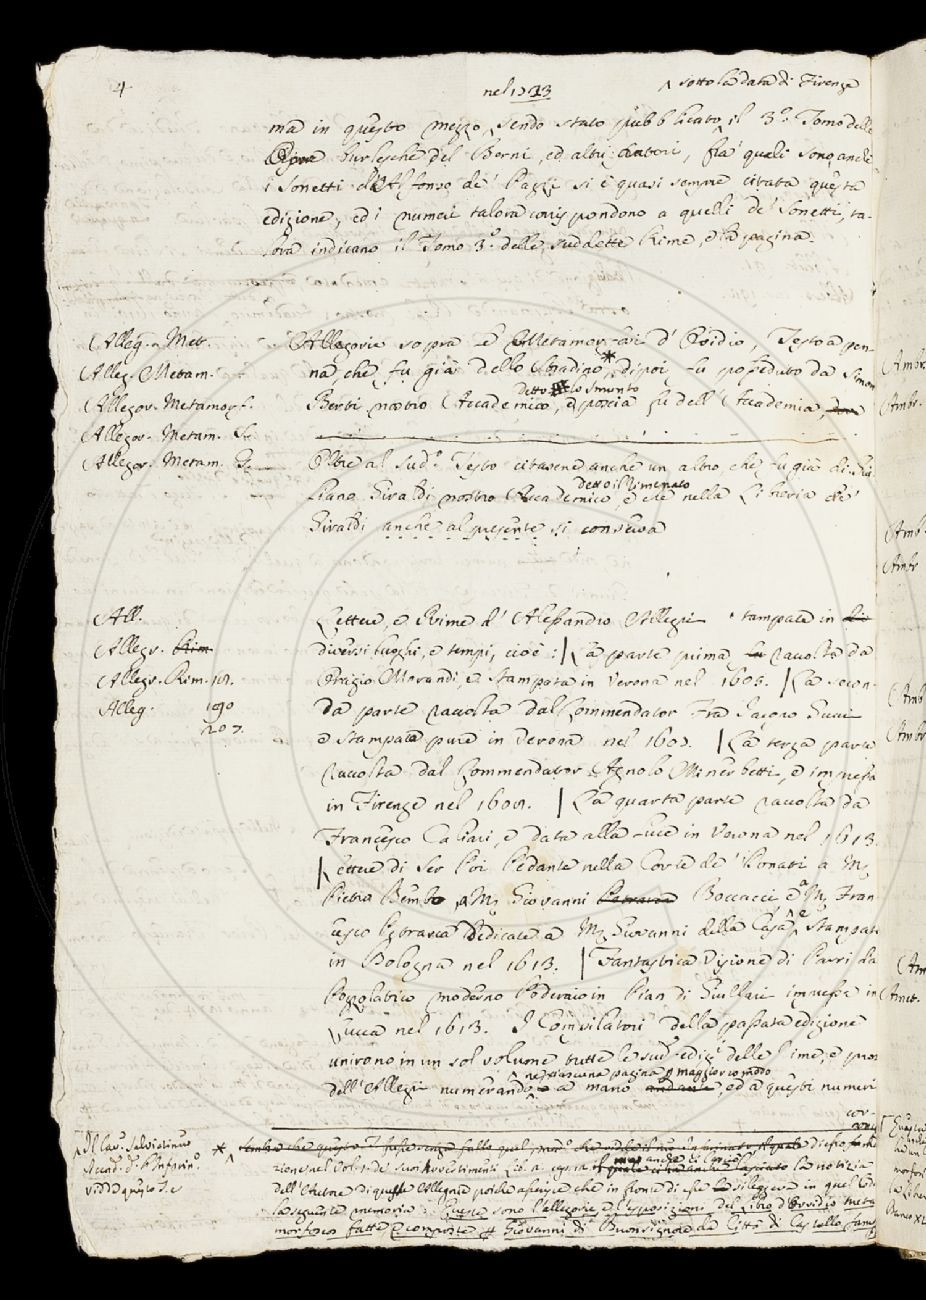 4
nel 1723
sotto la data di Firenze
ma in questo mezzo sendo stato pubblicato il 3.º Tomo delle
Opere burlesche del Berni, ed altri Autori, fra' quali sono anche
i Sonetti d'Alfonso de' Pazzi si è quasi sempre citata questa
edizione, ed i numeri talora corrispondono a quelli de' Sonetti, ta-
lora indicano il Tomo 3.º delle suddette Rime, e la pagina.
Alleg. Met.
Alleg. Metam.
Allegor. Metamorf.
Allegor. Metam. Str.
Allegor. Metam. G.
Allegorie sopra le Metamorfosi d'Ovidio, Testo a pen-
na, che fu già dello Stradino,* dipoi fu posseduto da Simon
detto lo Smunto
Berti nostro Accademico, e poscia fu dell'Accademia,
Oltre al sud.º Testo citasene anche un altro che fu già di Giu-
detto il Rimenato
liano Giraldi nostro Accademico, e che nella Libreria de'
Giraldi anche al presente si conserva
All.
Allegr. Rim
Allegr. Rim.
Alleg. 190
207.
Lettere, e Rime d'Alessandro Allegri stampate in
diversi luoghi, e tempi, cioè: La parte prima la raccolta da
Orazio Morandi, e Stampata in Verona nel 1605. La secon-
da parte raccolta dal Commendator Fra Jacopo Gucci
e stampata pure in Verona nel 1607. La terza parte
raccolta dal Commendator Agnolo Minerbetti, e impressa
in Firenze nel 1608. La quarta parte raccolta da
Francesco Caliari, e data alla luce in Verona nel 1613.
Lettere di Ser Poi Pedante nella Corte de' Donati a M.
Pietro Bembo, a M. Giovanni Petrarca Boccacci e a M. Fran-
cesco Petrarca Dedicate a M. Giovanni della Casa, e Stampate
in Bologna nel 1613. Fantastica Visione di Parri da
Pozzolatico moderno Poderaio in Pian di Giullari impressa in
Lucca nel 1613. I Compilatori della passata edizione
unirono in un sol volume tutte le sud. ediz. delle Rime, e prose
nè ciascuna pagina p maggior comodo
dell'Allegri numerandole a mano, ed a questi numeri
cor-
Il Cav. Salviati
vidde questo T. e
* sembra che questo T. fosse senza fallo quel med.º che
zione nel Vol. p. de' suoi Avvertimenti
dell'Autore di queste Allegorie poichè afferma che in fronte di esse si leggeva in quel Cod.
la seguente memoria: Queste sono l'allegorie, e l'esposizioni del libro d'Ovidio Meta
morfoseos fatte e composte p Giovanni di Buonsignore da Città di Castello famo